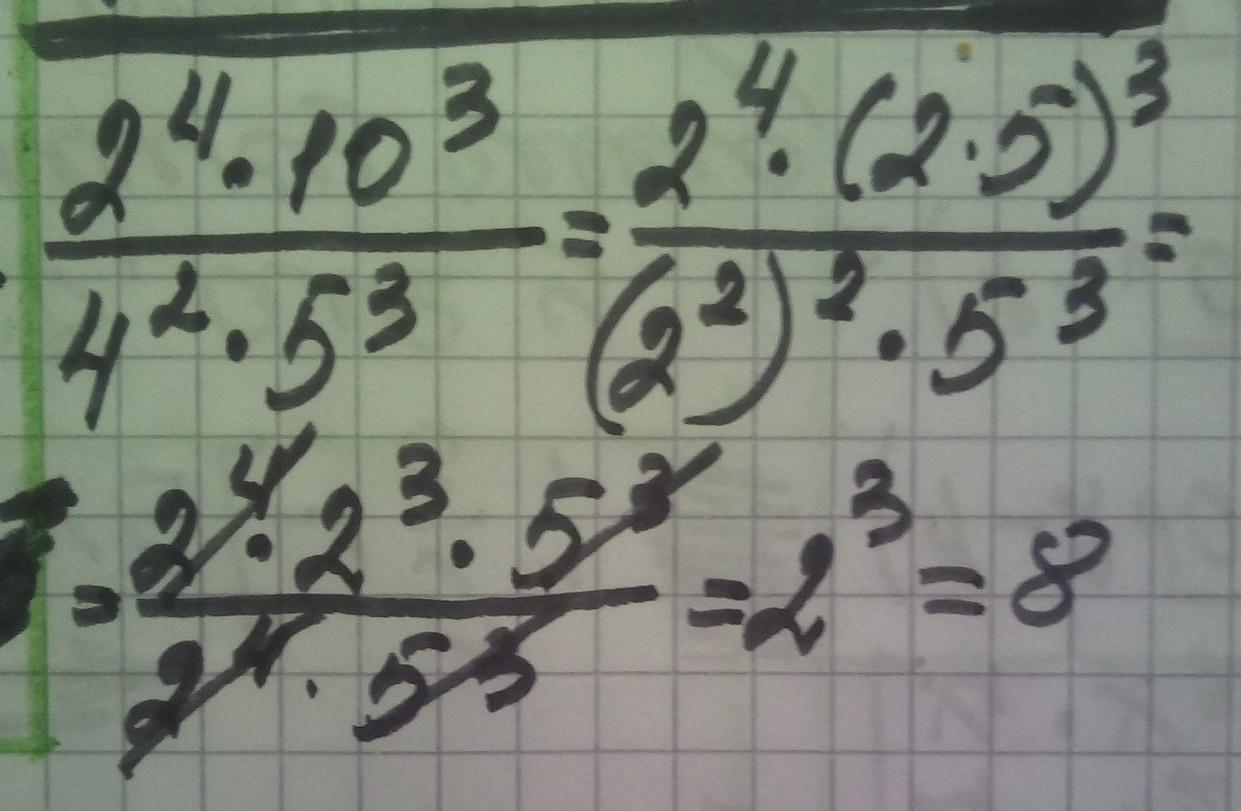 2⁴·10³/4²·5³ = 2⁴·(2·5)³/(2²)²·5³ =
= 2⁴·2³·5³/2⁴·5³ = 2³ = 8